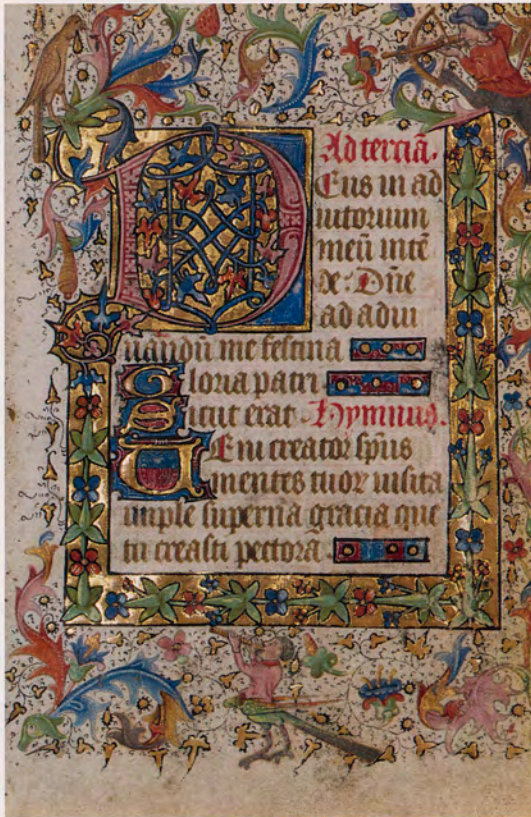 Ad terciā.
Deus in ad
iutorium
meū intē
de. Dn̄e
ad adiu
uandū me festina
Gloria patri
Sicut erat. Hymnus.
Veni creator sp̄us
mentes tuoꝝ uisita
imple superna gracia que
tu creasti pectora.